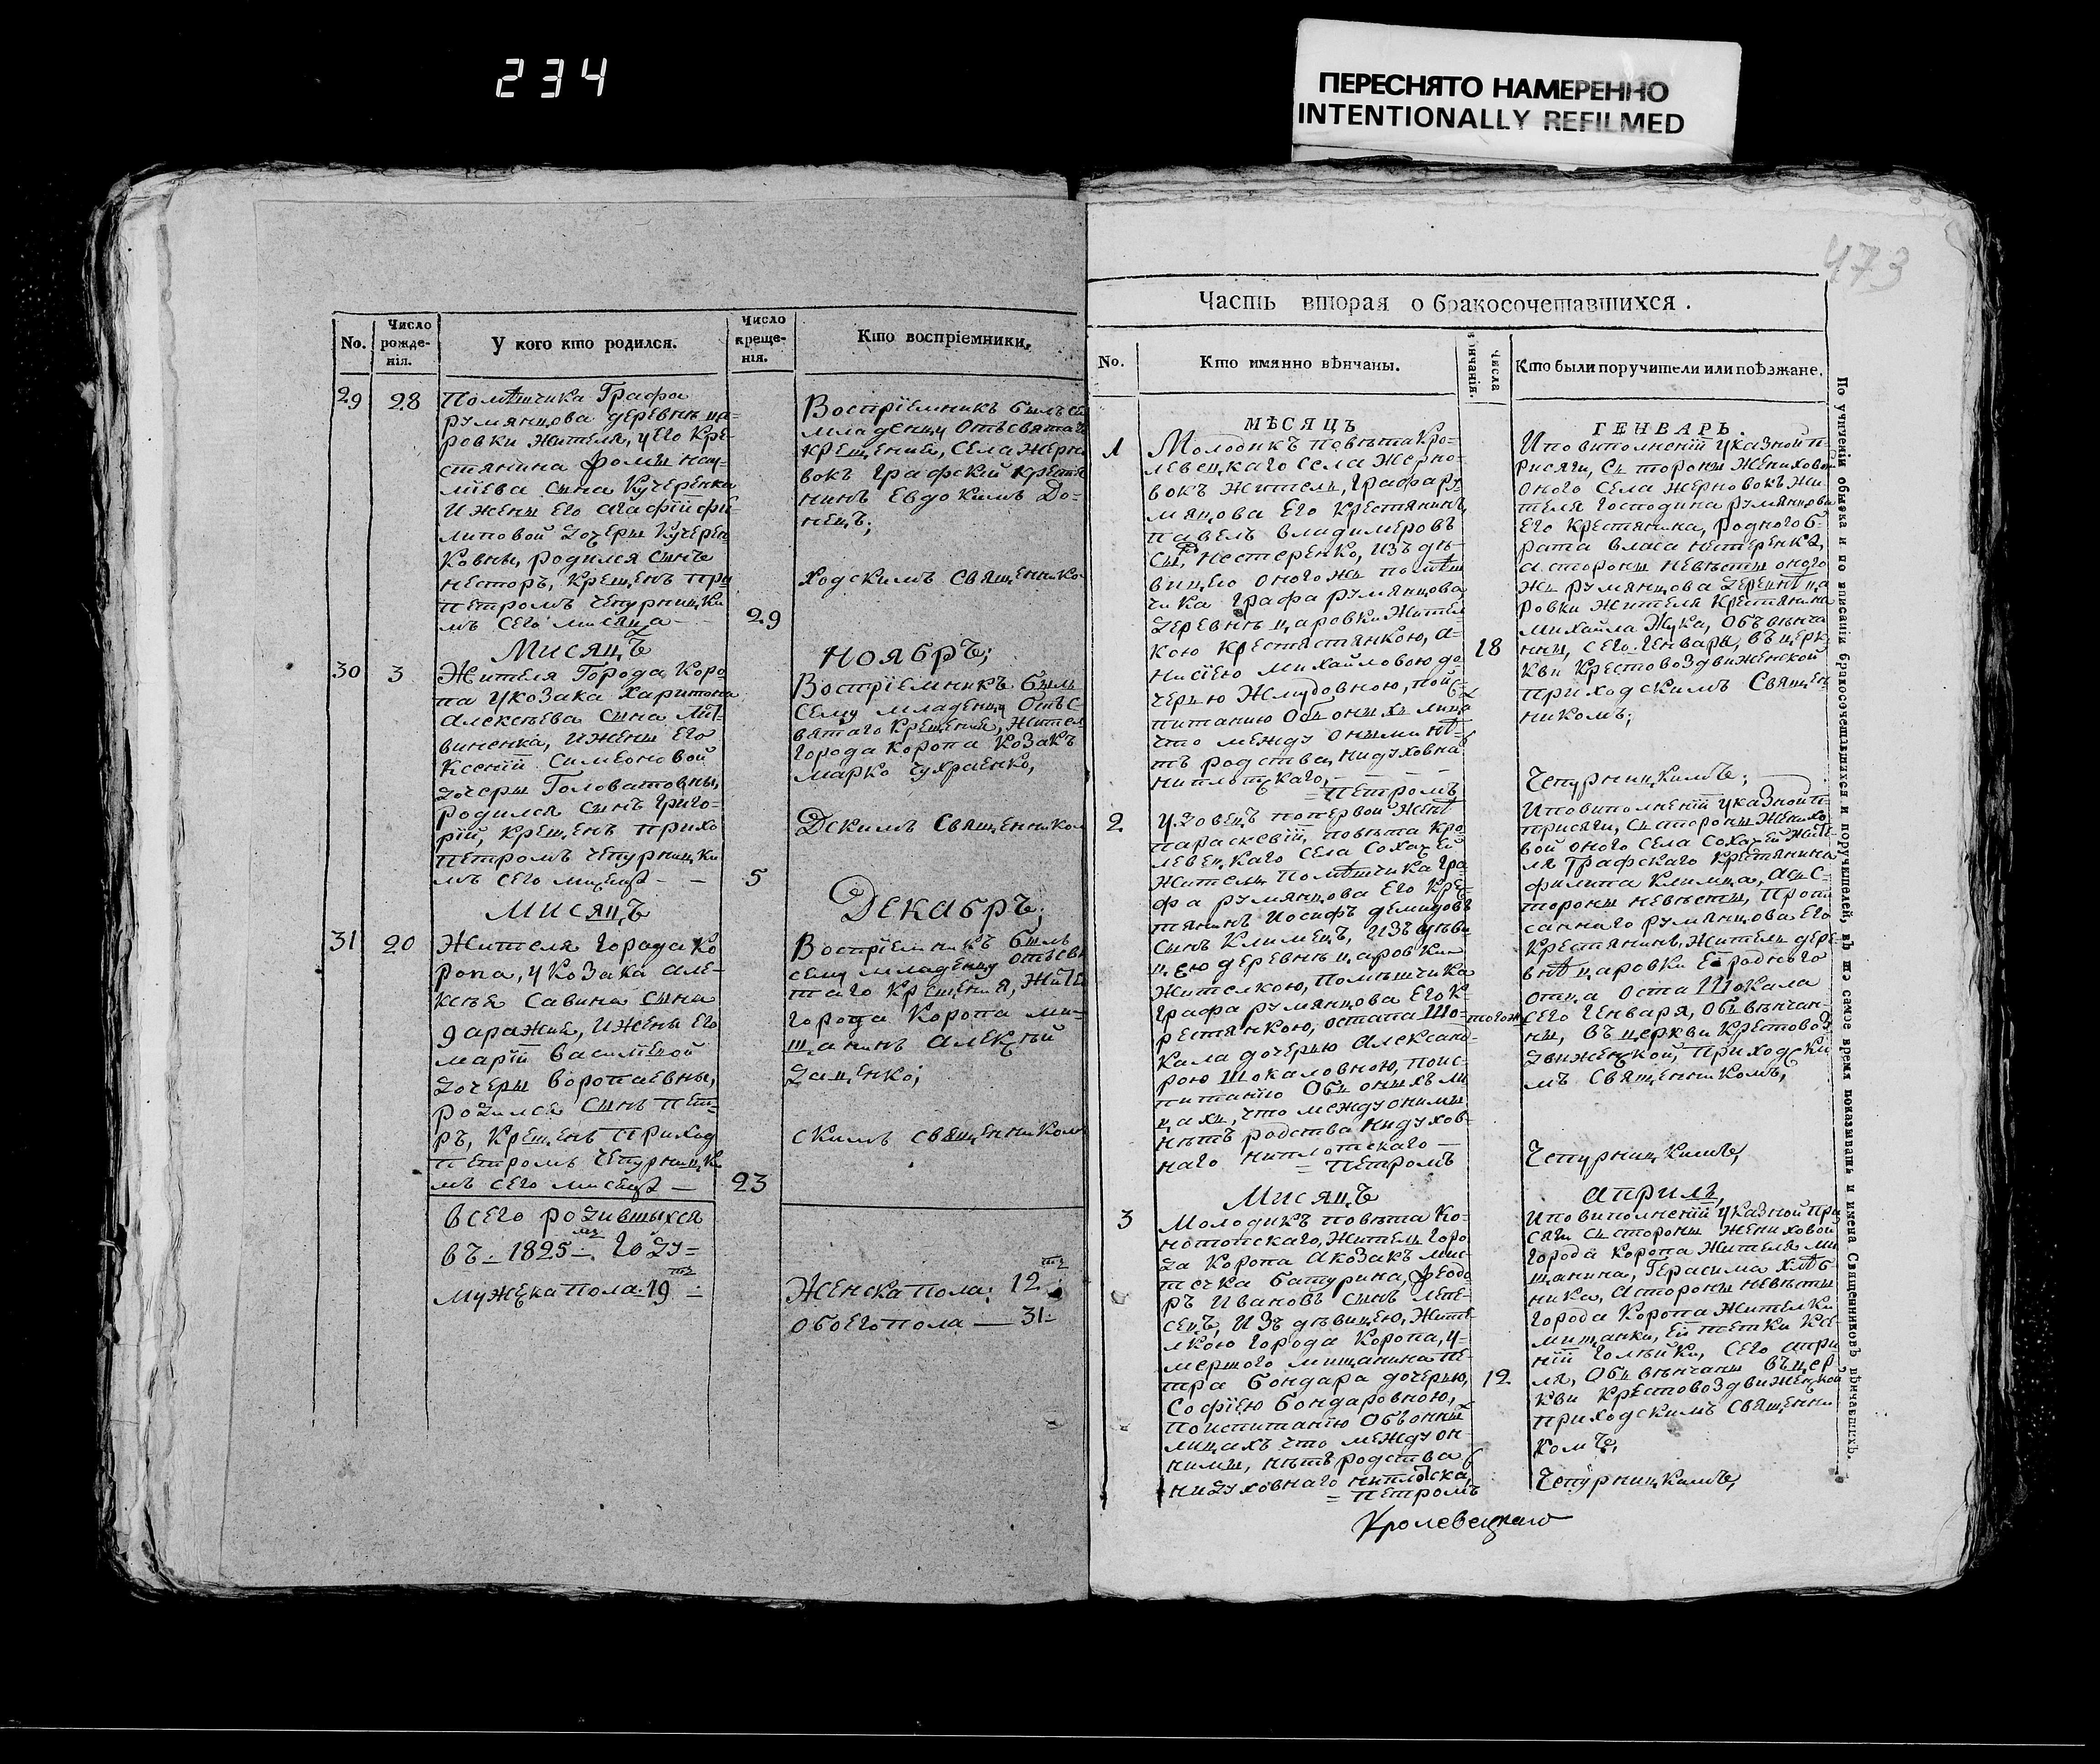 234
ПЕРЕСНЯТО НАМЕРЕННО
INTENTIONALLY REFILMED
No.
Число рожде-нія.
У кого кто родился.
Число креще-нія.
Кто воспріемники.
29
28
Помѣщика Графа
румянцова деревнѣ ца=
ровки жителя, у его кре-
стянина фомы
сына Кучеренка
и жены его агафіи фи-
липовой дочеры Кучерен
ковны, родился сынъ
несторъ, крещенъ при
петромъ чепурницки
мъ сего мисяца
29
Воспріемникъ былъ се
младенцу отъ свята
крещения, села жерно
вокъ графскій кретя
нинъ Евдокимъ До=
нецъ;
ходскимъ священнико
Мисяцъ
Ноябръ;
30
3
Жителя Города Коро
па у козака харитона
алексѣева сына Лит
виненка, и жены его
Ксеніи симеоновой
дочеры Головатовны,
родился сынъ григо=
рій, крещенъ прихо
петромъ чепурницки
мъ сего мисяца
5
Воспріемникъ былъ
сему младенцу отъ с-
вятаго крещения, жител
города коропа козакъ
марко чухраенко,
Дскимъ священником
Мисяцъ
Декабръ;
31
20
Жителя города ко
ропа, у козака але-
ксѣя савина сына
и жены его
маріи василіевой
дочеры воропаевны,
родился сынъ пет-
ръ, крещенъ приход
петромъ чепурницки
мъ сего мисяца
23
Воспріемникъ былъ
сему младенцу отъ свя
таго крещения, жите
города коропа ми-
щанинъ алексѣй
заценко;
скимъ священником
всего родившихся
въ 1825 году=
мужеска пола 19
Женска пола: 12
обоего пола — 31
473
Часть вторая о бракосочетавшихся.
No.
Кто имянно вѣнчаны.
Числа вѣнчанія.
Кто были поручители или поѣзжане.
МѢСЯЦЪ
ГЕНВАРЬ.
1
Молодикъ повѣта кро=
левецкаго села жерно-
вокъ житель, графа ру-
мянцова его крестянинъ
павелъ владимеровъ
сы, нестеренко, изъ дѣ-
вицею оного жъ помѣщ
чика графа румянцова
деревнѣ царовки жител
кою крестястянкою, а-
нисіею михайловою до
черью жмудовною, по ис
питанию объ оныхъ лица
что между оными нѣ-
тъ родства, ни духовна
ни плотскаго,
= петромъ
18
И по виполненіи указной п-
рисяги, съ стороны жениховой
оного села жерновокъ жи-
теля господина румянцова
его крестянина, родного б-
рата власа нестеренка,
а стороны невѣсты оного
жъ румянцова деревнѣ ца
ровки жителя крестянина
михайла Жука, объвѣнча
нны, сего генваря, въ церк
кви крестовоздвиженской
приходскимъ священ-
никомъ;
Чепурницкимъ;
2
удовецъ по первой женѣ
параскевіи, повѣта кро
левецкаго села сохачей
житель помѣщика гра-
фа румянцова его крес
тянинъ іосифъ демидовъ
сынъ климецъ, изъ дѣви
цею деревнѣ царовки
жителкою, помѣщика
графа румянцова его к-
рестянкою, остапа шо-
кала дочерью александ-
рою шокаловною, по ис-
питанию объ оныхъ ли
цахъ, что между оними
нѣтъ родства ни духов-
наго ни плотскаго —
= петромъ
тогожъ
И по виполненіи указной п-
присяги, съ стороны женихо
вой оного села сохачей жите
ля графского крестянина
филипа климца, а съ с-
тороны невѣсты, пропи
саннаго румянцова его
крестянинъ, житель дере-
внѣ царовки её родного
отца остапа Шокала
сего Генваря, объвѣнчан-
ны, въ церкви крестовоз
движенской, приходски
мъ священникомъ,
Чепурницкимъ,
Мисяцъ
априлъ,
3
Молодикъ повѣта ко-
нотопскаго, житель горо
да коропа а козакъ мис
течка батурина, феодо
ръ ивановъ сынъ лепе-
сецъ, изъ дѣвицею, жите
лкою города коропа, у-
мершого мищанина пе-
тра бондара дочерью,
софіею бондаровною,
по испитанію объ оных
лицахъ что между он
ними, нѣтъ родства
ни духовнаго ни плотска,
= петромъ
12
И по виполненіи указной при
сяги съ стороны жениховой
города коропа жителя ми
щанина, герасима хлѣб-
ника, а стороны невѣсты
города коропа жителки
мищанки, ей тетки ксе
ніи голѣйки, сего апри
ля, объ вѣнчаны въ цер
кви крестовоздвиженской
приходскимъ священни
комъ,
Чепурницкимъ,
Кролевецкаго
По учиненіи обыска и по вписаніи бракосочетавшихся и поручителей, въ то самое время показывать и имена Священниковъ вѣнчавшихъ.